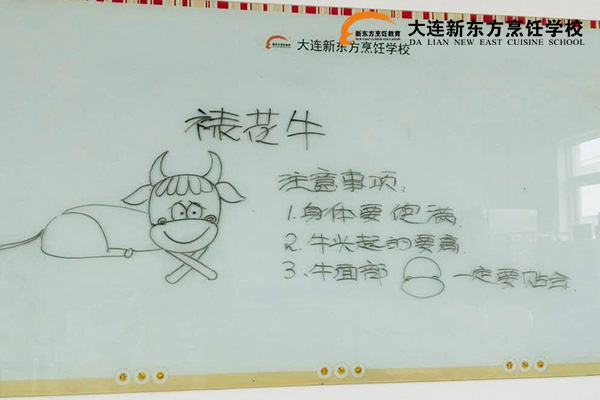 新东方烹饪教育
大连新东方烹饪学校
DA LIAN NEW EAST CUISINE SCHOOL
大连新东方烹饪学校
裱花牛
注意事项:
1.身体要饱满.
2.牛头起的要高
3、牛面部 一定要贴合.